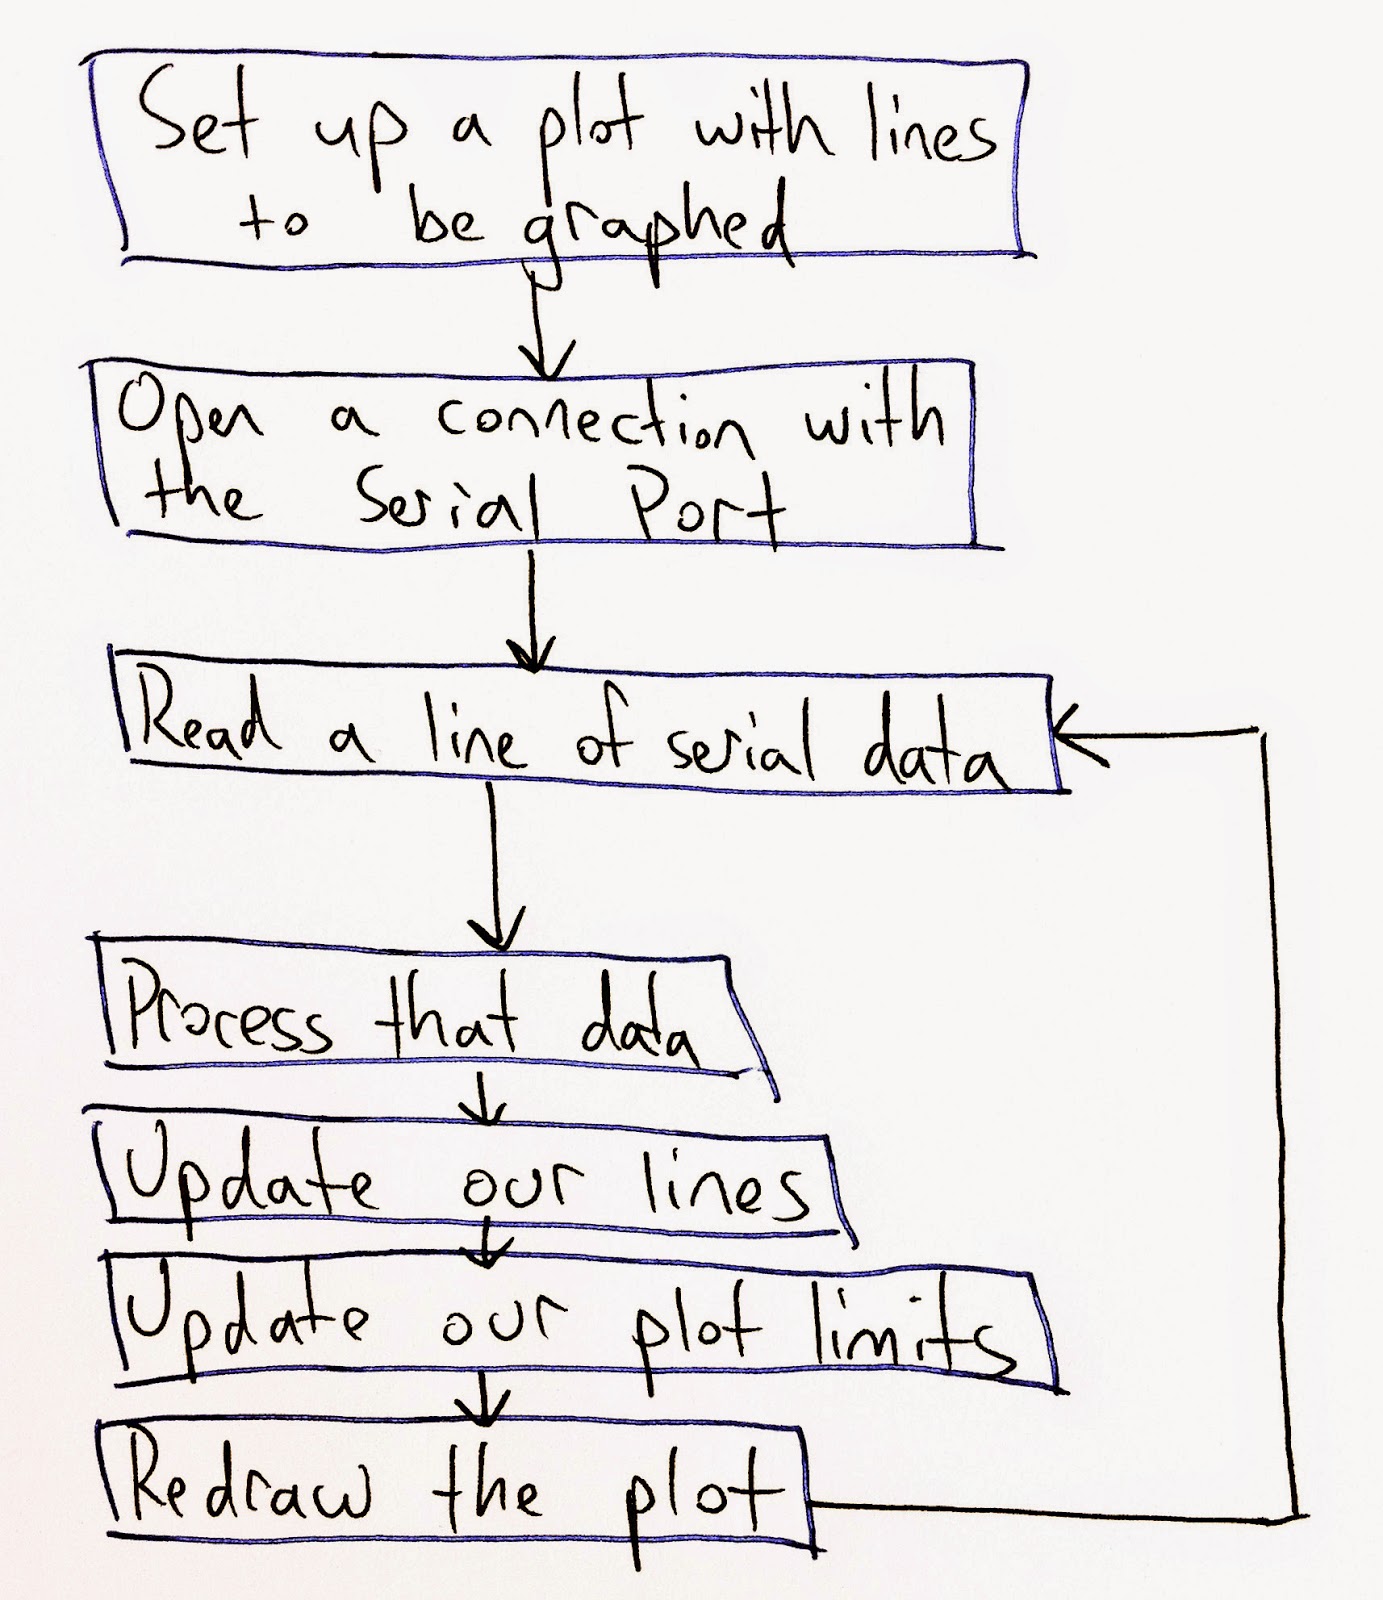 Set up a plot with lines
to be graphed
Open a connection with
the Serial Port
Read a line of serial data
Process that data
Update our lines
Update our plot limits
Redraw the plot